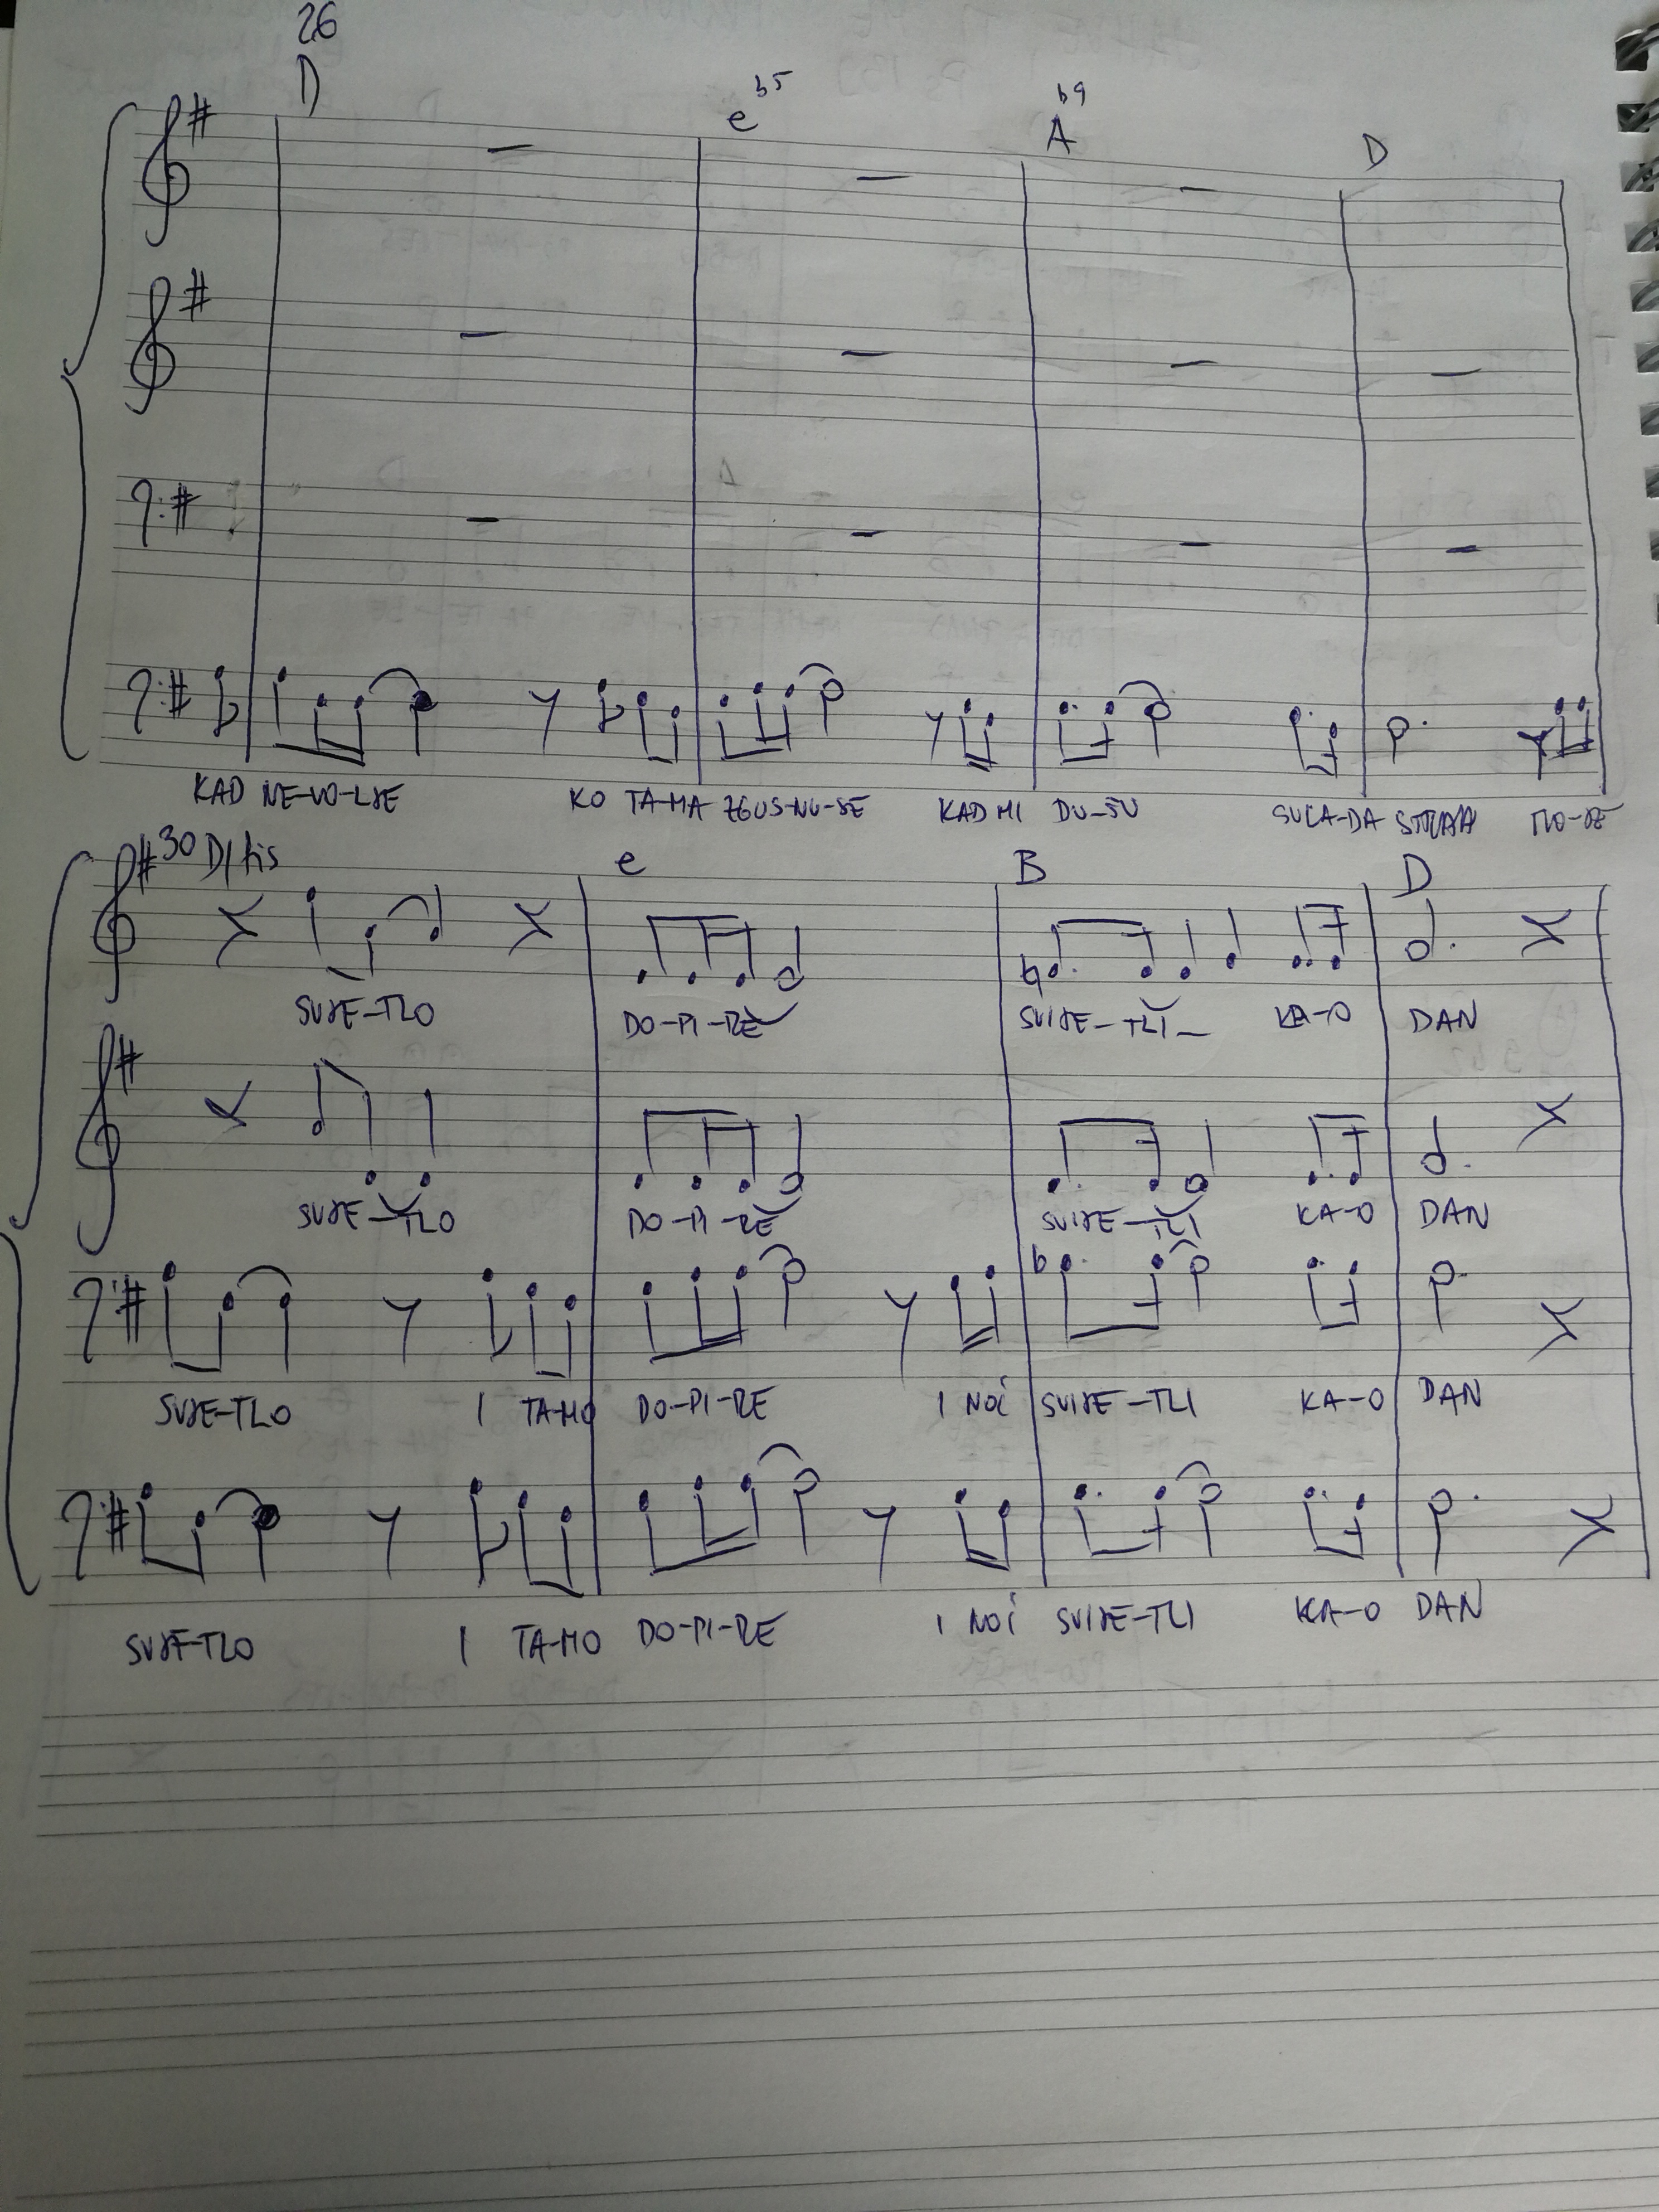 26
D e b5 A b9 D
KAD NE-VO-LJE KO TA-MA ZGUS-NU-SE KAD MI DU-ŠU SVLA-DA STRAH TVO-JE
30 D/fis e B D
SVJE-TLO DO-PI-RE SVIJE-TLI- KA-O DAN
SVJE-TLO DO-PI-RE SVIJE-TLI KA-O DAN
SVJE-TLO I TA-MO DO-PI-RE I NOĆ SVIJE-TLI KA-O DAN
SVJE-TLO I TA-MO DO-PI-RE I NOĆ SVIJE-TLI KA-O DAN